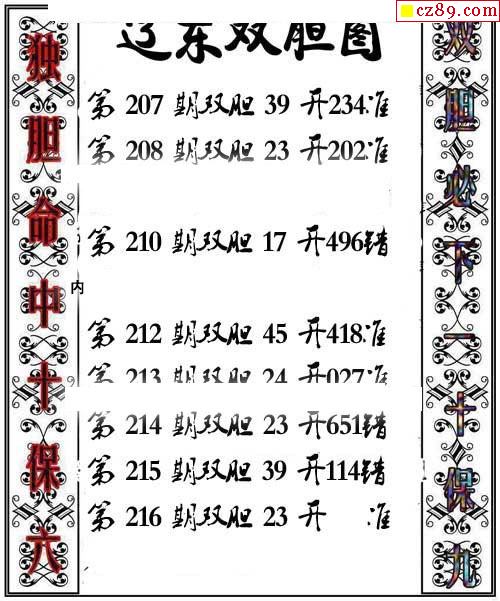 cz89.com
辽东双胆图
独胆命中十保六
双胆必下一十保九
第 207 期双胆 39 开234准
第 208 期双胆 23 开202准
第 210 期双胆 17 开496错
内
第 212 期双胆 45 开418准
第 213 期双胆 24 开027准
第 214 期双胆 23 开651错
第 215 期双胆 39 开114错
第 216 期双胆 23 开 准